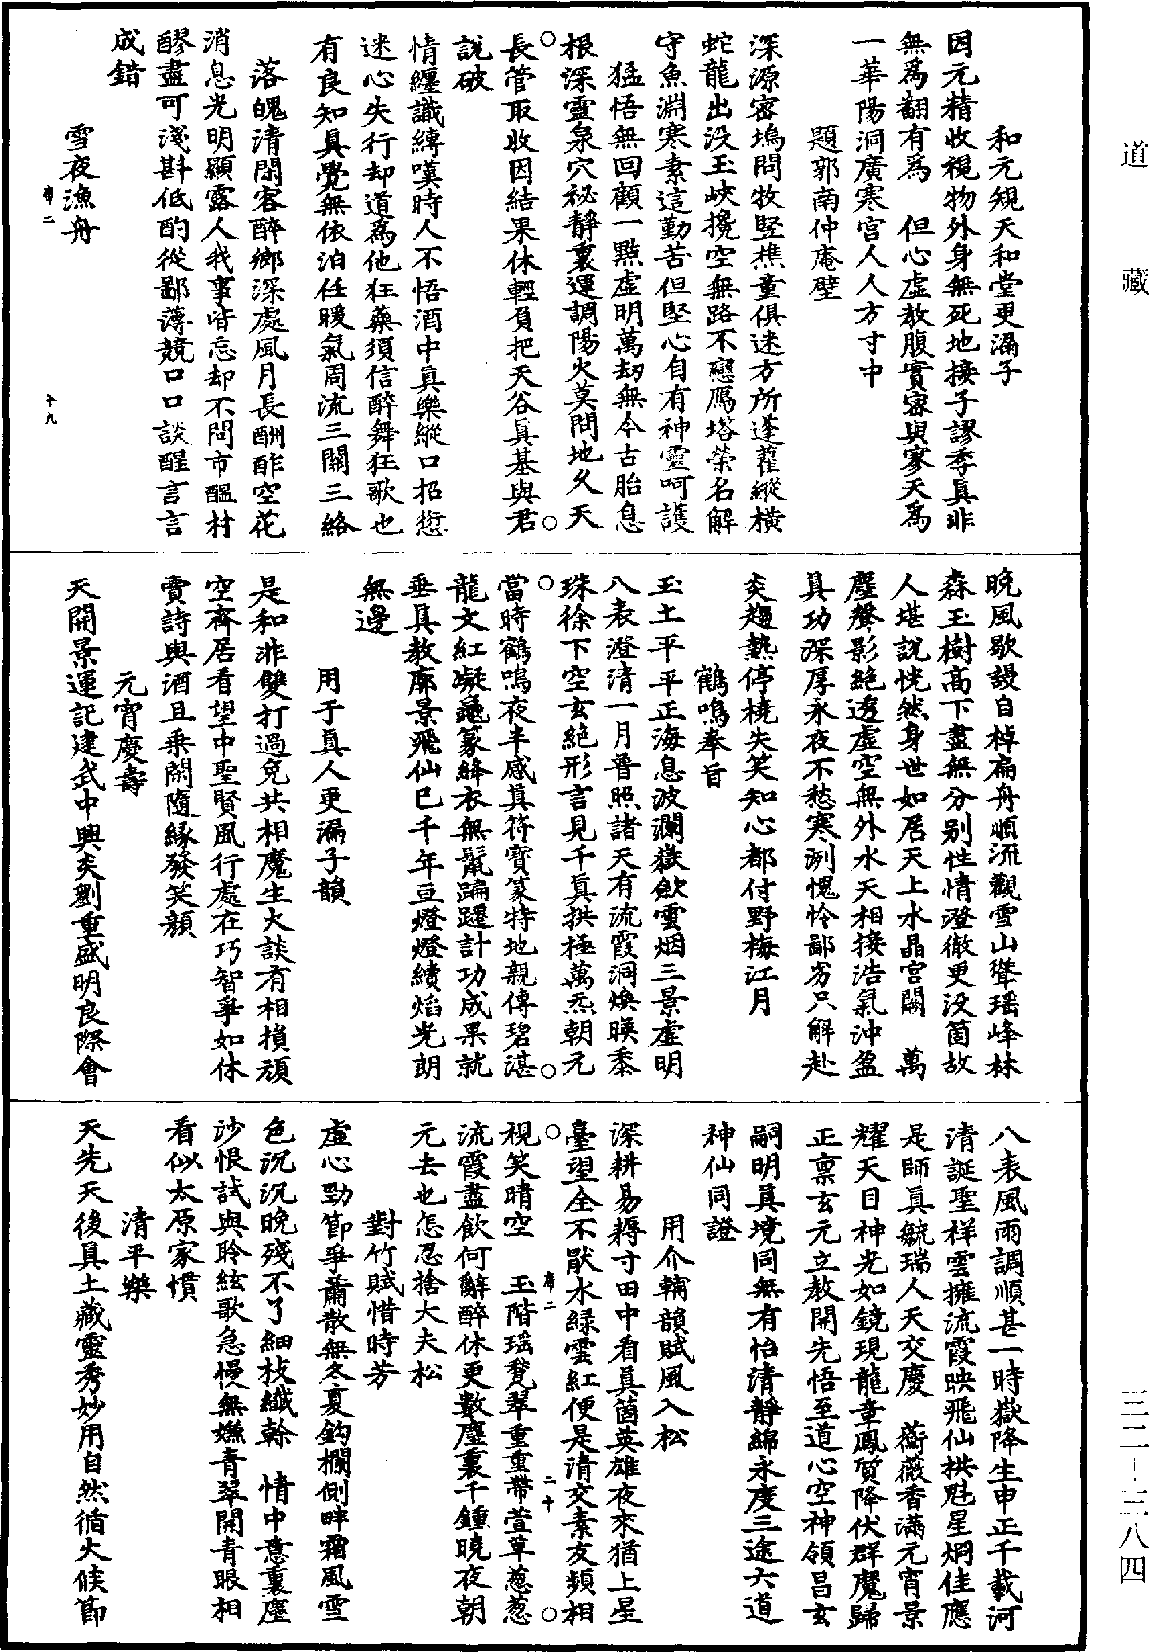 道藏
和元規天和堂更漏子
因元精收視物外身無死地接子謬季真非
無為翻有為　但心虛教腹實密與寥天為
一華陽洞廣寒宮人人方寸中
題郭南仲庵壁
深源密塢問牧豎樵童俱迷方所蓬藋縱橫
蛇龍出沒玉峽攙空無路不戀鴈塔榮名解
守魚淵寒素這勤苦但堅心自有神靈呵護
猛悟無回顧一點虛明萬劫無今古胎息
根深靈泉穴祕靜裏運調陽火莫問地久天
長管取收因結果休輕負把天谷真基與君
說破
情纏識縛嘆時人不悟酒中真樂縱口招愆
迷心失行却道為他狂藥須信醉舞狂歌也
有良知真覺無依泊任暖氣周流三關三絡
落魄清閑客醉鄉深處風月長酬酢空花
消息光明顯露人我事皆忘却不問市醞村
醪盡可淺斟低酌從鄙薄競口口談醒言言
成錯
雪夜漁舟
席二
十九
晚風歇謾自棹扁舟順流觀雪山聳瑤峰林
森玉樹高下盡無分別性情澄徹更沒箇故
人堪說恍然身世如居天上水晶宮闕　萬
塵聲影絕透虛空無外水天相接浩氣沖盈
真功深厚永夜不愁寒冽愧怜鄙劣只解赴
炎趨熱停橈失笑知心都付野梅江月
鶴鳴奉旨
玉土平平正海息波瀾嶽斂雲烟三景虛明
八表澄清一月普照諸天有流霞洞煥暎黍
珠徐下空玄絕形言見千真拱極萬炁朝元
當時鶴鳴夜半感真符寶篆特地親傳碧湛
龍文紅凝龜篆絳衣無鬣蹁躚計功成果就
垂真教廓景飛仙巳千年豆燈燈續焰光朗
無邊
用于真人更漏子韻
是和非雙打過免共相魔生大談有相損頑
空齊居看望中聖賢風行處在巧智爭如休
賣詩與酒且乘閑隨緣發笑顏
元宵慶壽
天開景運記建武中興炎劉重盛明良際會
八表風雨調順甚一時嶽降生申正千載河
清誕聖祥雲擁流霞映飛仙拱魁星炯佳應
是師真毓瑞人天交慶　薔薇香滿元宵景
耀天目神光如鏡現龍章鳳質降伏群魔歸
正稟玄元立教開先悟至道心空神領昌玄
嗣明真境同無有怡清靜綿永度三途六道
神仙同證
用介輔韻賦風入松
深耕易耨寸田中看真箇英雄夜來猶上星
臺望全不猒水綠雲紅便是清交素友頻相
視笑晴空　玉階瑤甃翠重重帶萱草葱葱
流霞盡飲何辭醉休更數塵裏千鍾曉夜朝
元去也怎忍捨大夫松
席二
二十
對竹賦惜時芳
虛心勁節爭蕭散無冬夏鈎欄側畔霜風雪
色沉沉晚殘不了細枝纖榦　情中意裏塵
沙恨試與聆絃歌急慢無嫌青翠開青眼相
看似太原家慣
清平樂
天先天後真土藏靈秀妙用自然循火候節
三二－三八四